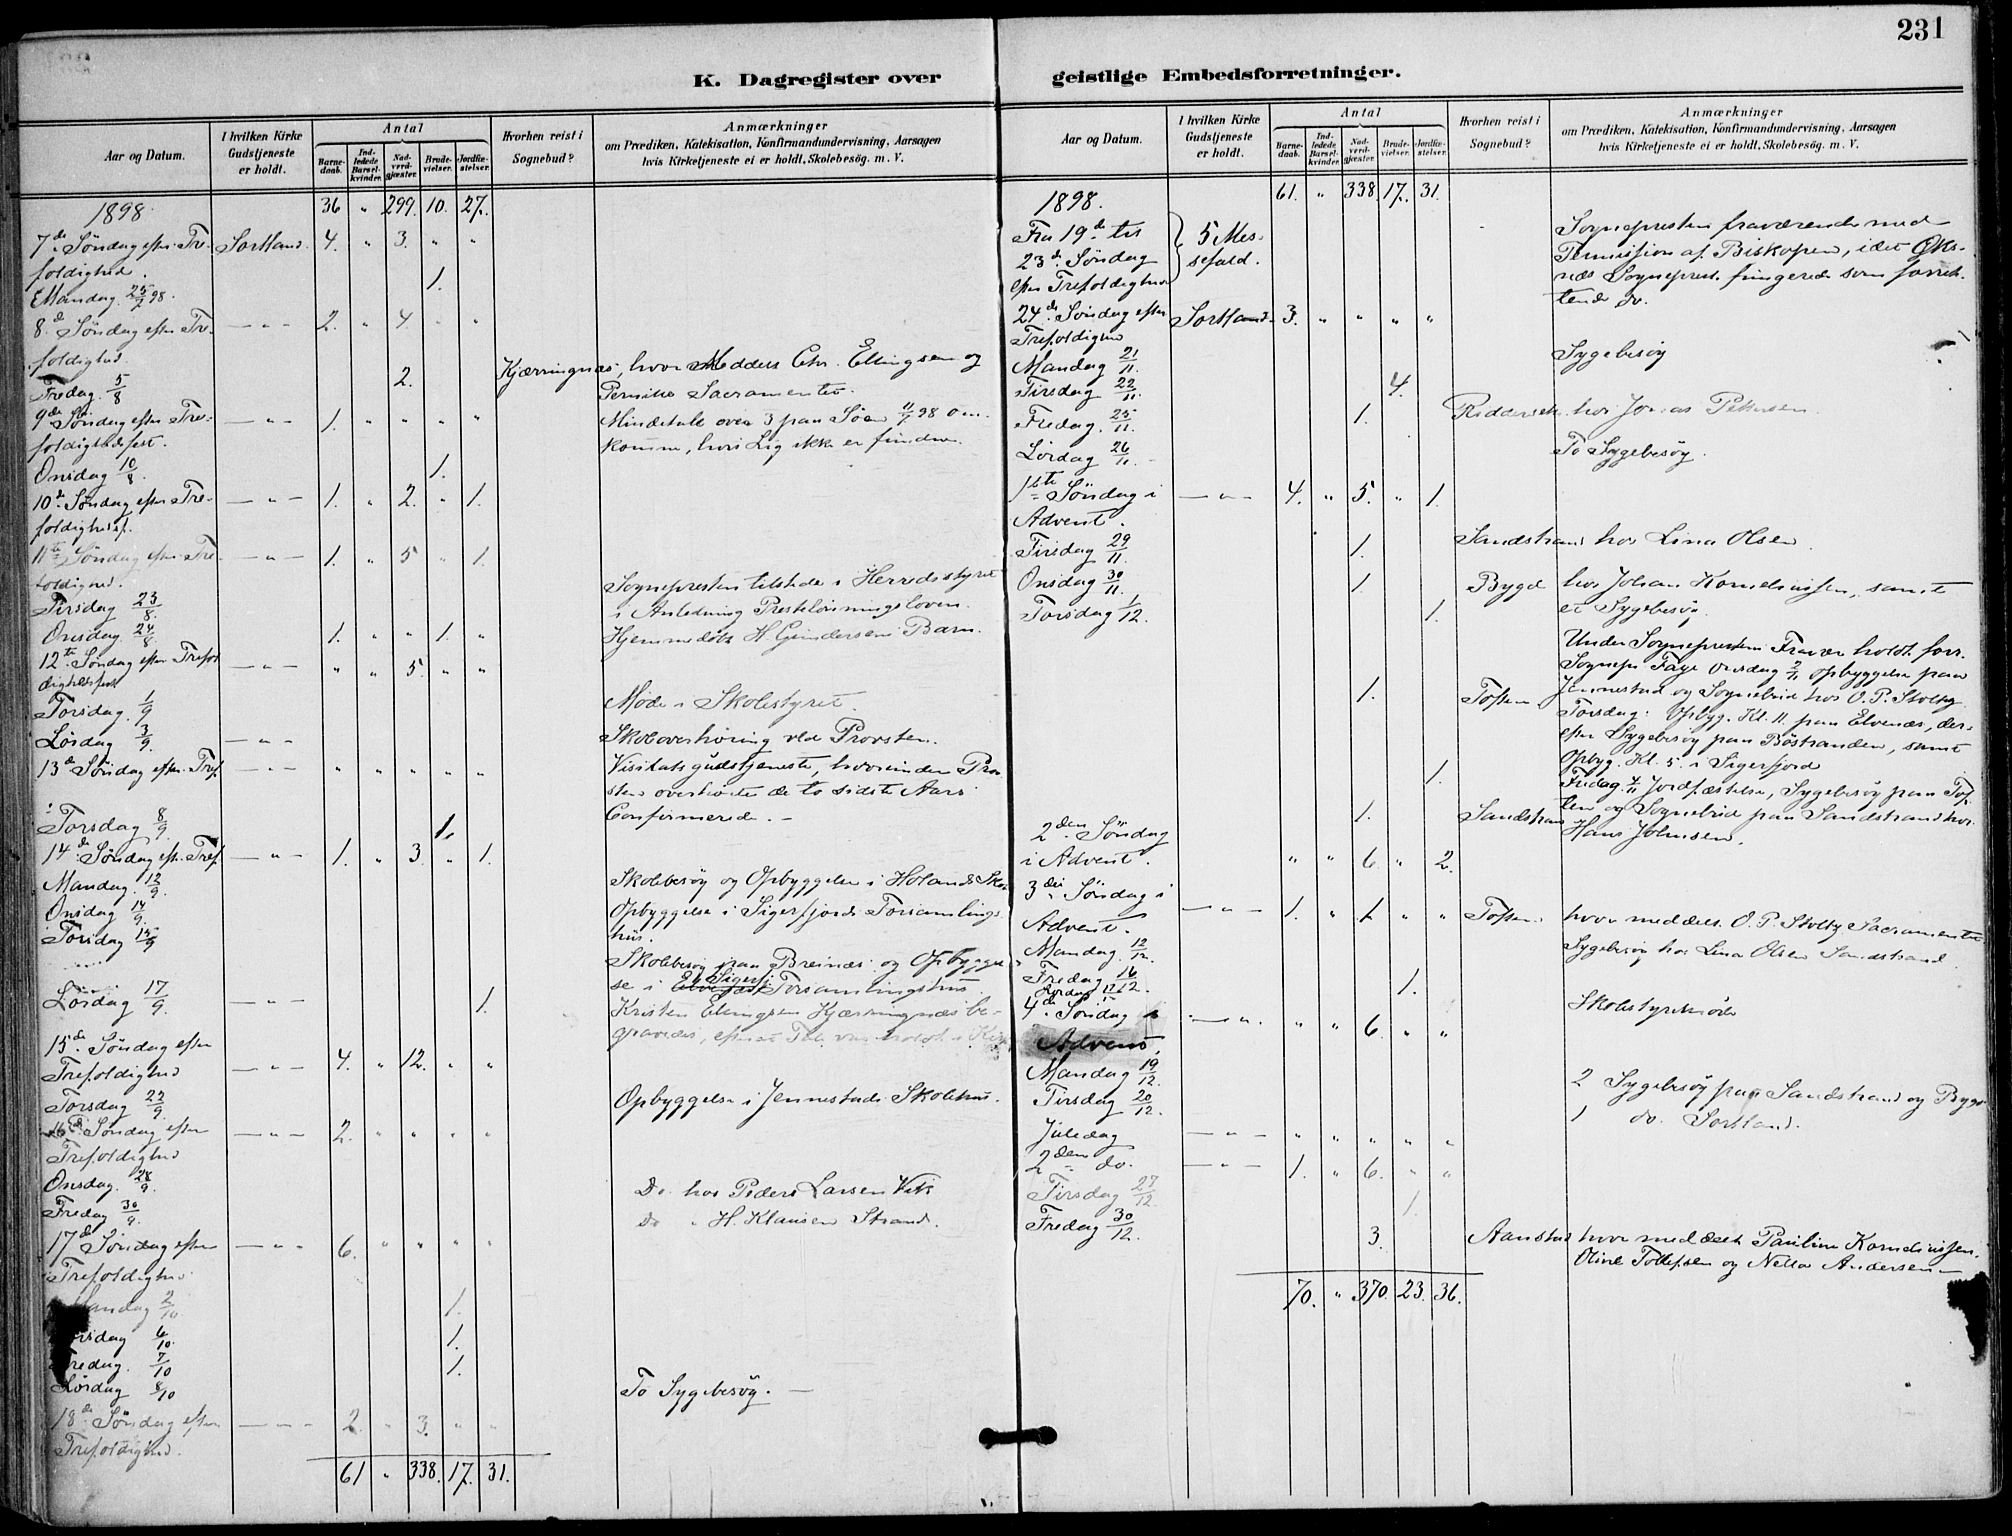 231
K. Dagregister over geistlige Embedsforretninger.
Aar og Datum.
I hvilken Kirke Gudstjeneste er holdt.
Antal
Barnedaab.
Indledede Barselkvinder.
Nadverdgjæster.
Brudevielser.
Jordfæstelser.
Hvorhen reist i Sognebud?
Anmærkninger
om Prædiken, Katekisation, Konfirmandundervisning, Aarsagen
hvis Kirketjeneste ei er holdt, Skolebesøg. m. V.
1898. 36 " 299. 10. 27.
7de Søndag efter Tre- Sortland. 4. " 3. " "
foldighed.
Mandag 25/7 98. 1.
8de Søndag efter Tre- — " — 2. " 4. " "
foldighed.
Fredag 5/8 2. Kjærringnæs, hvor Meddelt Chr. Ellingsen og
Pernike Sacramentet.
9de Søndag efter Tre- — " — 1. " " " " Mindetale over 3 paa Søen 11/7 98 om-
foldighedsfest. komne, hvis Lig ikke er fundne.
Onsdag 10/8. 1.
10de Søndag efter Tre- — " — 1. " 2. " 1.
foldighedsf.
11te Søndag efter Tre- — " — 1. " 5 " 1.
foldighed.
Tirsdag 23/8. Sognepresten tilstede i Herredsstyret
i Anledning Presteløningsloven.
Onsdag 24/8 1. " " 1. " Hjemmedøbt H. Gundersens Barn.
12te Søndag efter Trefol — " — " " 5. " "
dighedsfest
Torsdag 1/9 Møde i Skolestyret.
Lørdag 3/9. — " — Skoleoverhøring ved Provsten.
13de Søndag efter Tref. — " — " " " " " Visitatsgudstjeneste, hvorunder Prov
sten overhørte de to sidste Aars
Confirmerede. –
Torsdag 8/9. 1.
14de Søndag eft. Tref. — " — 1. " 3. " 1.
Mandag 12/9. Skolebesøg og Opbyggelse i Holands Skol
Onsdag 14/9. Opbyggelse i Sigerfjords Forsamlings-
hus.
Torsdag 15/9 Skolebesøg paa Breinæs og Opbyggel
se i Forsamlingshus.
Lørdag 17/9 — " — 1. Kristen Ellingsen Kjærringnæs be-
gravedes, efterat Tale var holdt i
15de Søndag efter
Trefoldighed — " — 4. " 12. " "
Torsdag 22/9. Opbyggelse i Jennestads Skolehus.
16de Søndag efter — " — 2. " " " "
Trefoldighed
Onsdag 28/9. Do. hos Peder Larsen Vik
Fredag 30/9. Do " H. Klausen Strand.
17de Søndag efter — " — 6. " " " "
Trefoldighed
Mandag 2/10 1.
Torsdag 6/10 1.
Fredag 7/10 1.
Lørdag 8/10 To Sygebesøg. –
18de Søndag efter — " — 2. " 3. " "
Trefoldighed.
61 " 338. 17. 31.
Aar og Datum.
I hvilken Kirke Gudstjeneste er holdt.
Antal
Barnedaab.
Indledede Barselkvinder.
Nadverdgjæster.
Brudevielser.
Jordfæstelser.
Hvorhen reist i Sognebud?
Anmærkninger
om Prædiken, Katekisation, Konfirmandundervisning, Aarsagen
hvis Kirketjeneste ei er holdt, Skolebesøg. m. V.
1898. 61. " 338 17. 31.
Fra 19de til 5 Mes- Sognepresten fraværende med
23de Søndag sefald. Permission af Biskopen, idet Øks-
efter Trefoldighed næs Sogneprest fungerede som forret-
tende do.
24de Søndag efter Sortland. 3. " " " "
Trefoldighed
Mandag 21/11. Sygebesøg
Tirsdag 22/11. 4.
Fredag 25/11. 1. hos Jonas Pettersen.
Lørdag 26/11. To Sygebesøg.
1ste Søndag i — " — 4. " 5. " 1.
Advent.
Tirsdag 29/11 1. Sandstrand hos Lina Olsen.
Onsdag 30/11. 1. Bygd hos Johan Kornelinssen, samt
Torsdag 1/12. 1. et Sygebesøg.
Under Sogneprestens Fravær holdt forr.
Sognepr. Faye Onsdag 2/11 Opbyggelse paa
1. Toften Jennestad og Sognebud hos O. P. Stolby
Torsdag: Opbyg. Kl. 11 paa Elvenæs, der-
efter Sygebesøg paa Bøstranden, samt
Opbyg. Kl. 5. i Sigerfjord
1. Fredag 4/11 Jordfæstelse, Sygebesøg paa Tof-
1. Sandstrand ten og Sognebud paa Sandstrand hos
Hans Johnsen.
2den Søndag
i Advent. " " 6 " 2.
3die Søndag i — " — 1. " 1 " " Toften hvor meddelt O. P. Stolby Sacramentet
Advent.
Mandag 12/12. Sygebesøg hos Lina Olsen Sandstrand
Fredag 16/12. 1.
Lørdag 17/12. Skolestyremøde
4de Søndag i — " — " " 6. " "
Advent,
Mandag 19/12. 2 Sygebesøg paa Sandstrand og Bygd
Tirsdag 20/12. 1 do. Sortland.
Juledag — " — " " " " "
2den do. — " — 1. " 6. " "
Tirsdag 27/12. 1.
Fredag 30/12. 3. Aanstad hvor meddelt Pauline Kornelinssen,
Oline Tollefsen og Nella Andersen –
70. " 370. 23. 36.